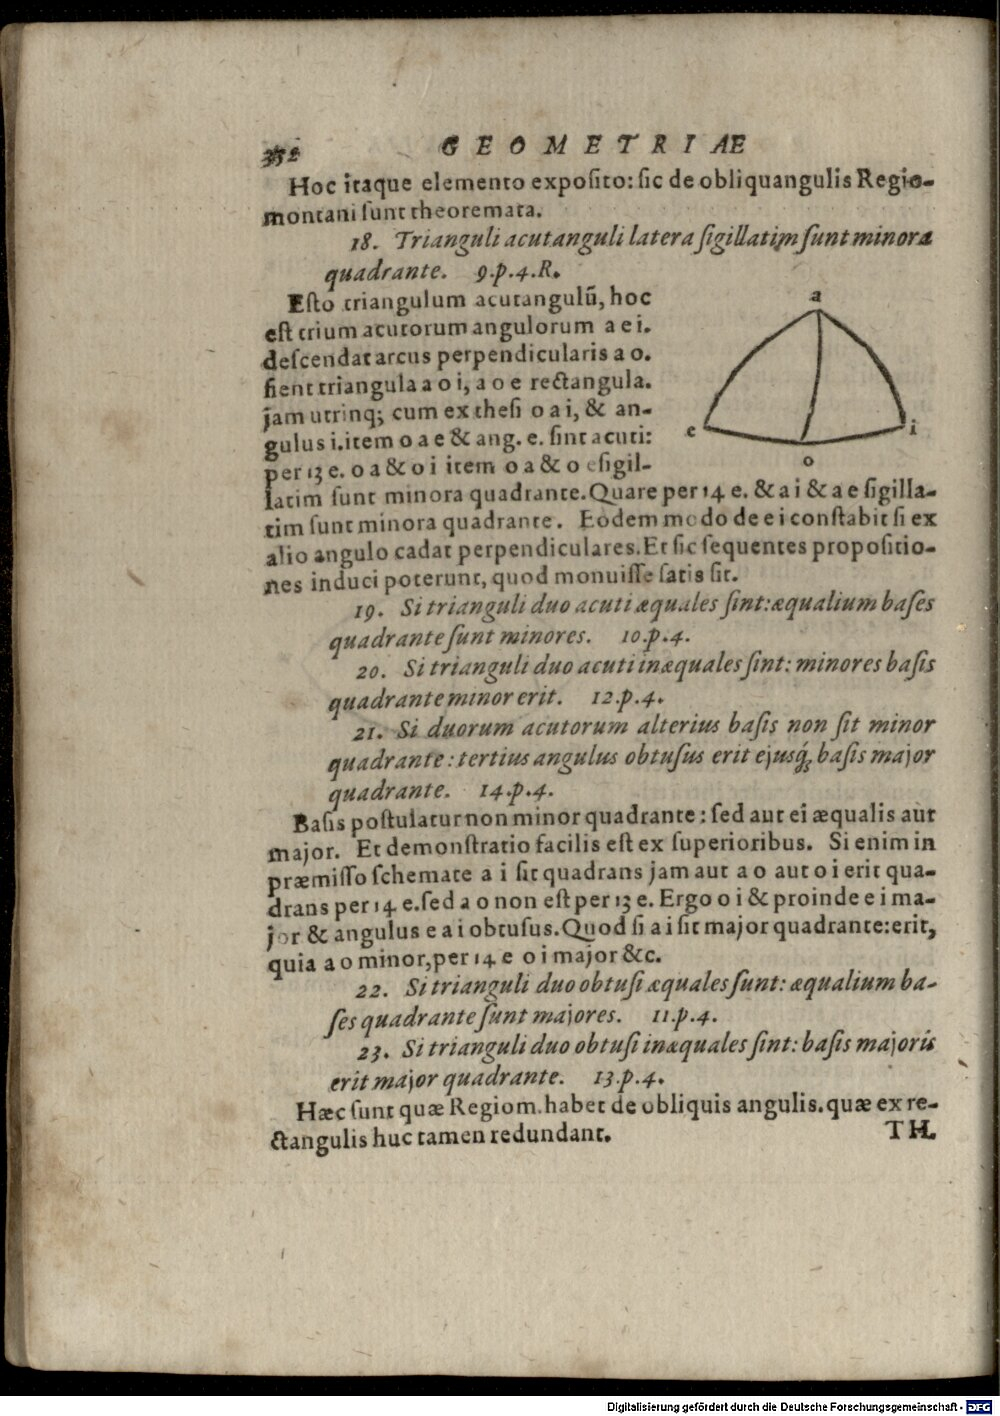 352 GEOMETRIÆ
Hoc itaque elemento exposito: sic de obliquangulis Regio-
montani sunt theoremata.
18. Trianguli acutanguli latera sigillatim sunt minora
quadrante. 9.p.4.R.
Esto triangulum acutangulũ, hoc
est trium acutorum angulorum a e i.
descendat arcus perpendicularis a o.
fient triangula a o i, a o e rectangula.
jam utrinq; cum ex thesi o a i, & an-
gulus i. item o a e & ang. e. sint acuti:
per 13 e. o a & o i item o a & o e sigil-
latim sunt minora quadrante. Quare per 14 e. & a i & a e sigilla-
tim sunt minora quadrante. Eodem modo de e i constabit si ex
alio angulo cadat perpendiculares. Et sic sequentes propositio-
nes induci poterunt, quod monuisse satis sit.
a
e
i
o
19. Si trianguli duo acuti æquales sint: æqualium bases
quadrante sunt minores. 10.p.4.
20. Si trianguli duo acuti inæquales sint: minores basis
quadrante minor erit. 12.p.4.
21. Si duorum acutorum alterius basis non sit minor
quadrante: tertius angulus obtusus erit ejusq́; basis major
quadrante. 14.p.4.
Basis postulatur non minor quadrante: sed aut ei æqualis aut
major. Et demonstratio facilis est ex superioribus. Si enim in
præmisso schemate a i sit quadrans jam aut a o aut o i erit qua-
drans per 14 e. sed a o non est per 13 e. Ergo o i & proinde e i ma-
jor & angulus e a i obtusus. Quod si a i sit major quadrante: erit,
quia a o minor, per 14 e o i major &c.
22. Si trianguli duo obtusi æquales sunt: æqualium ba-
ses quadrante sunt majores. 11.p.4.
23. Si trianguli duo obtusi inæquales sint: basis majoris
erit major quadrante. 13.p.4.
Hæc sunt quæ Regiom. habet de obliquis angulis. quæ ex re-
ctangulis huc tamen redundant.
TH.
Digitalisierung gefördert durch die Deutsche Forschungsgemeinschaft - DFG